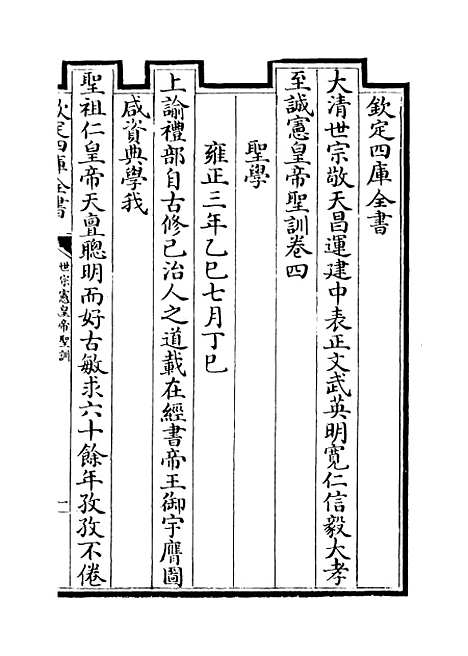 欽定四庫全書
大清世宗敬天昌運建中表正文武英明寬仁信毅大孝
至誠憲皇帝聖訓卷四
聖學
雍正三年乙巳七月丁巳
上諭禮部自古修己治人之道載在經書帝王御宇膺圖
咸資典學我
聖祖仁皇帝天亶聰明而好古敏求六十餘年孜孜不倦
欽定四庫全書
世宗憲皇帝聖訓
一